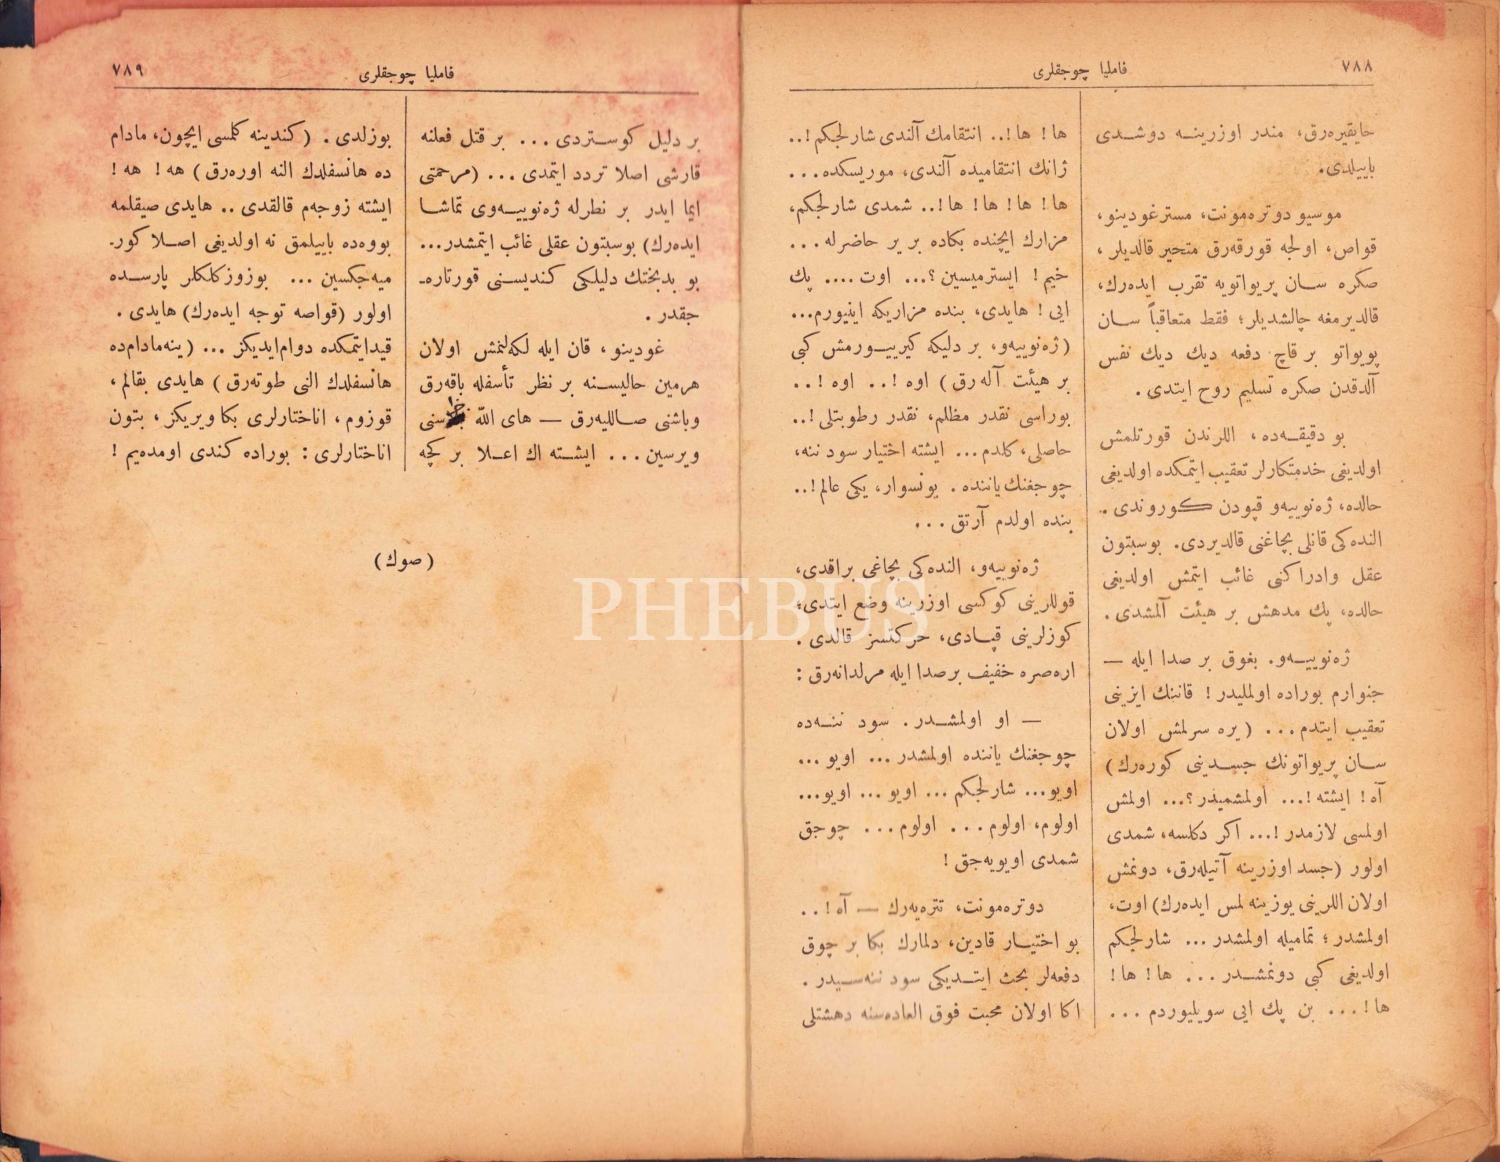 ٧٨٨
فامليا چوجقلری
حايقيره‌رق، مندر اوزرينه دوشدی
باييلدی.
موسيو دوتره‌مونت، مسترغودينو،
قواص، اولجه قورقه‌رق متحير قالديلر،
صكره سان پريواتويه تقرب ايده‌رك،
قالديرمغه چالشديلر؛ فقط متعاقباً سان
پويواتو بر قاچ دفعه ديك ديك نفس
آلدقدن صكره تسليم روح ايتدی.
بو دقيقه‌ده، اللرندن قورتلمش
اولديغی خدمتكارلر تعقيب ايتمكده اولديغی
حالده، ژه‌نوييه‌و قپودن كوروندی.
النده‌كی قانلی بچاغنی قالديردی. بوسبتون
عقل وادراكنی غائب ايتمش اولديغی
حالده، پك مدهش بر هيئت آلمشدی.
ژه‌نوييه‌و. بغوق بر صدا ايله —
جنوارم بوراده اولمليدر! قاننك ايزينی
تعقيب ايتدم... (يره سرلمش اولان
سان پريواتونك جسدينی كوره‌رك)
آه! ايشته!... اولمشميدر؟... اولمش
اولمسی لازمدر!... اكر دكلسه، شمدی
اولور (جسد اوزرينه آتيله‌رق، دونمش
اولان اللرينی يوزينه لمس ايده‌رك) اوت،
اولمشدر؛ تماميله اولمشدر... شارلجكم
اولديغی كبی دونمشدر... ها! ها!
ها!... بن پك ايی سويليوردم...
ها! ها!.. انتقامك آلندی شارلجكم!..
ژانك انتقاميده آلندی، موريسكده...
ها! ها! ها! ها!.. شمدی شارلجكم،
مزارك ايچنده بكاده بر ير حاضرله...
خيم! ايسترميسين؟... اوت.... پك
ايی! هايدی، بنده مزاريكه اينيورم...
(ژه‌نوييه‌و، بر دليكه كيرييورمش كبی
بر هيئت آله‌رق) اوه!.. اوه!..
بوراسی نقدر مظلم، نقدر رطوبتلی!..
حاصلی، كلدم... ايشته اختيار سود ننه،
چوجغنك ياننده. يونسوار، يكی عالم!..
بنده اولدم آرتق...
ژه‌نوييه‌و، النده‌كی بچاغی براقدی،
قوللرينی كوكسی اوزرينه وضع ايتدی،
كوزلرينی قپادی، حركتسز قالدی.
اره‌صره خفيف برصدا ايله مرلدانه‌رق:
— او اولمشدر. سود ننه‌ده
چوجغنك ياننده اولمشدر... اويو...
اويو... شارلجكم... اويو... اويو...
اولوم، اولوم... اولوم... چوجق
شمدی اويويه‌جق!
دوتره‌مونت، تتره‌يه‌رك — آه!..
بو اختيار قادين، دلمارك بكا بر چوق
دفعه‌لر بحث ايتديكی سود ننه‌سيدر.
اكا اولان محبت فوق العاده‌سنه دهشتلی
٧٨٩
فامليا چوجقلری
بر دليل كوستردی... بر قتل فعلنه
قارشی اصلا تردد ايتمدی... (مرحمتی
ايما ايدر بر نظرله ژه‌نوييه‌وی تماشا
ايده‌رك) بوسبتون عقلی غائب ايتمشدر...
بو بدبختك دليلكی كنديسنی قورتاره‌ـ
جقدر.
غودينو، قان ايله لكه‌لنمش اولان
هرمين حاليسنه بر نظر تأسفله باقه‌رق
وباشنی صالليه‌رق — های الله جزاسنی
ويرسين... ايشته اك اعلا بر كچه
بوزلدی. (كندينه كلمسی ايچون، مادام
ده هانسفلدك النه اوره‌رق) هه! هه!
ايشته زوجه‌م قالقدی.. هايدی صيقلمه
بووه‌ده باييلمق نه اولديغی اصلا كورـ
ميه‌جكسين... بوزوزكلكلر پارسده
اولور (قواصه توجه ايده‌رك) هايدی.
قيدايتمكده دوام‌ايديكز... (ينه‌مادام‌ده
هانسفلدك النی طوته‌رق) هايدی بقالم،
قوزوم، اناختارلری بكا ويريكز، بتون
اناختارلری: بوراده كندی اومده‌يم!
(صوك)
PHEBUS